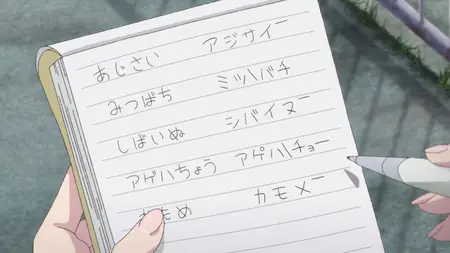 あじさい アジサイー
みつばち ミツハバチ
しばいぬ シバイヌー
アゲハちょう アゲハハチョー
もめ カモメー